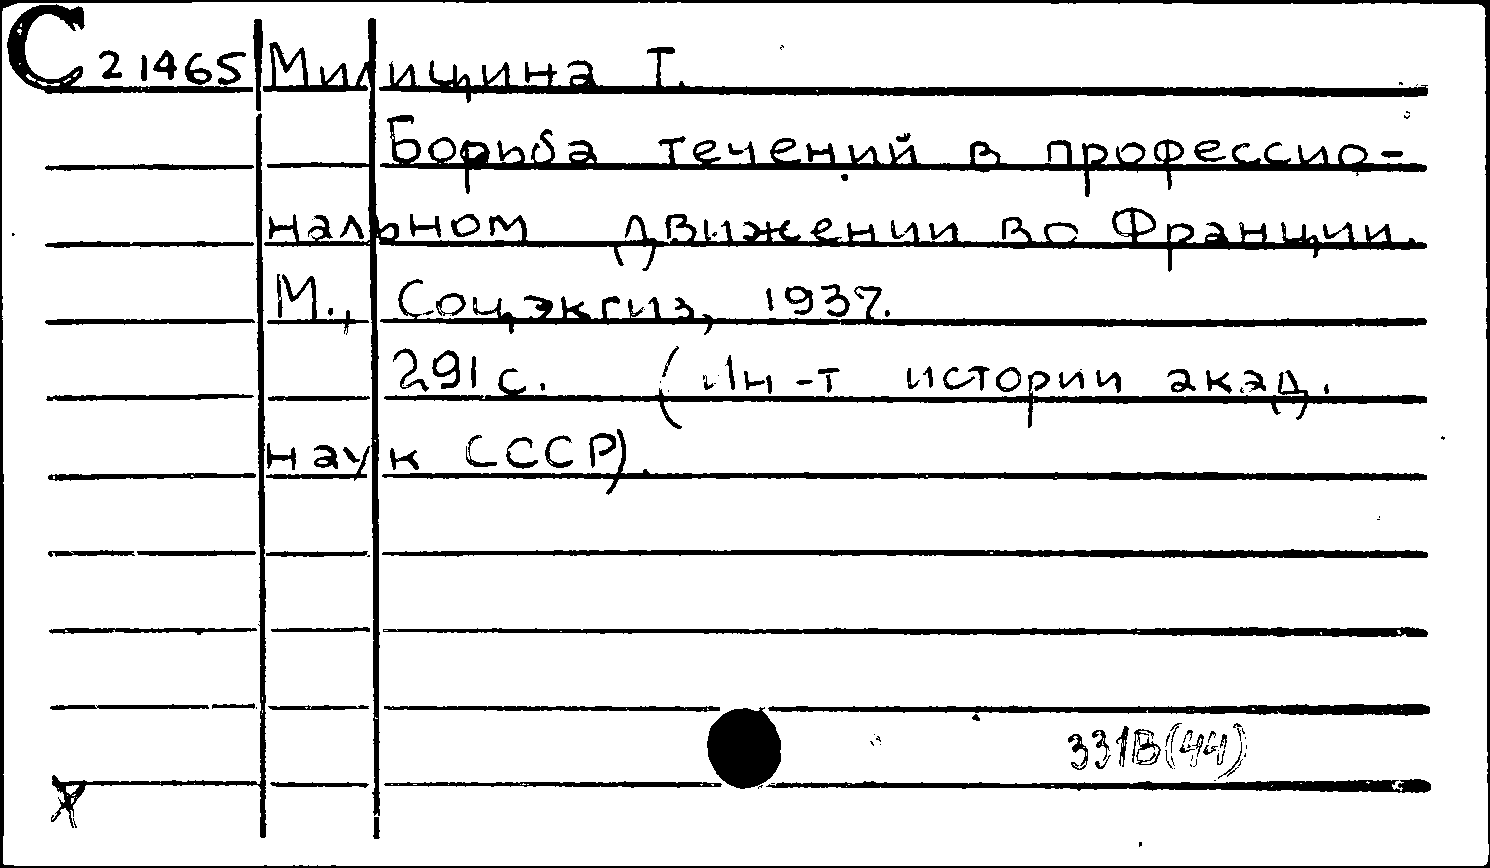 С 21465 Милицина Т.
Борьба течений в профессио-
нальном движении во Франции.
М., Соцэкгиз, 1937.
291 с. (Ин-т истории акад.
наук СССР).
331В(44)